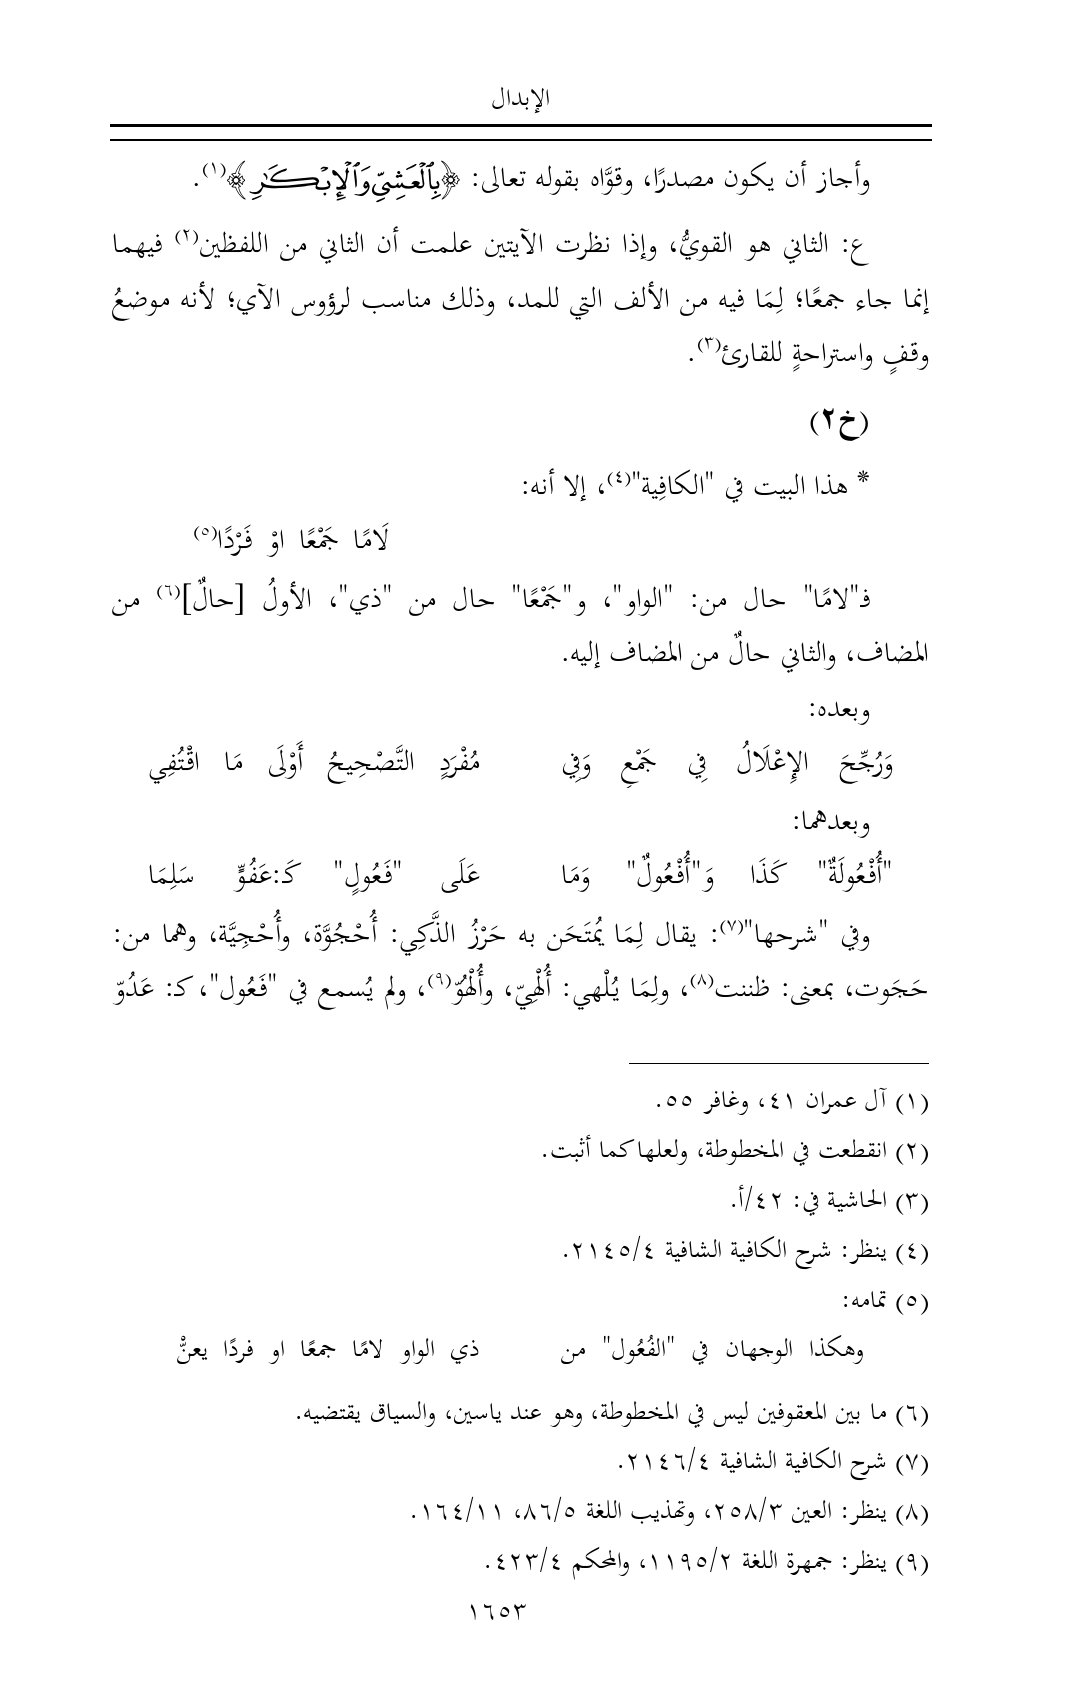 الإبدال
وأجاز أن يكون مصدرًا، وقوَّاه بقوله تعالى: ﴿بِٱلْعَشِيِّ وَٱلْإِبْكَٰرِ﴾(١).
ع: الثاني هو القويُّ، وإذا نظرت الآيتين علمت أن الثاني من اللفظين(٢) فيهما
إنما جاء جمعًا؛ لِمَا فيه من الألف التي للمد، وذلك مناسب لرؤوس الآي؛ لأنه موضعُ
وقفٍ واستراحةٍ للقارئ(٣).
(خ٢)
* هذا البيت في "الكافِية"(٤)، إلا أنه:
لَامًا جَمْعًا اوْ فَرْدًا(٥)
فـ"لامًا" حال من: "الواو"، و"جَمْعًا" حال من "ذي"، الأولُ [حالٌ](٦) من
المضاف، والثاني حالٌ من المضاف إليه.
وبعده:
وَرُجِّحَ الإِعْلَالُ فِي جَمْعٍ وَفِي مُفْرَدٍ التَّصْحِيحُ أَوْلَى مَا اقْتُفِي
وبعدهما:
"أُفْعُولَةٌ" كَذَا وَ"أُفْعُولٌ" وَمَا عَلَى "فَعُولٍ" كَـ:عَفُوٍّ سَلِمَا
وفي "شرحها"(٧): يقال لِمَا يُمتَحَن به حَرْزُ الذَّكِي: أُحْجُوَّة، وأُحْجِيَّة، وهما من:
حَجَوت، بمعنى: ظننت(٨)، ولِمَا يُلْهي: أُلْهِيّ، وأُلْهُوّ(٩)، ولم يُسمع في "فَعُول"، كـ: عَدُوّ
(١) آل عمران ٤١، وغافر ٥٥.
(٢) انقطعت في المخطوطة، ولعلها كما أثبت.
(٣) الحاشية في: ٤٢/أ.
(٤) ينظر: شرح الكافية الشافية ٢١٤٥/٤.
(٥) تمامه:
وهكذا الوجهان في "الفُعُول" من ذي الواو لامًا جمعًا او فردًا يعنّْ
(٦) ما بين المعقوفين ليس في المخطوطة، وهو عند ياسين، والسياق يقتضيه.
(٧) شرح الكافية الشافية ٢١٤٦/٤.
(٨) ينظر: العين ٢٥٨/٣، وتهذيب اللغة ٨٦/٥، ١٦٤/١١.
(٩) ينظر: جمهرة اللغة ١١٩٥/٢، والمحكم ٤٢٣/٤.
١٦٥٣